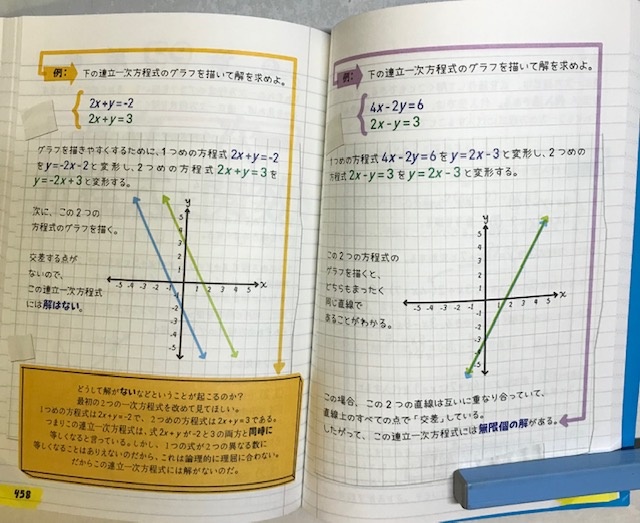 例:
下の連立一次方程式のグラフを描いて解を求めよ。
2x+y=-2
2x+y=3
グラフを描きやすくするために、1つめの方程式 2x+y=-2
をy=-2x-2と変形し、2つめの方程式 2x+y=3を
y=-2x+3と変形する。
次に、この2つの
方程式のグラフを描く。
交差する点が
ないので、
この連立一次方程式
には解はない。
y
5
4
3
2
1
-5 -4 -3 -2 -1 1 2 3 4 5 x
-1
-2
-3
-4
-5
どうして解がないなどということが起こるのか?
最初の2つの一次方程式を改めて見てほしい。
1つめの方程式は2x+y=-2で、2つめの方程式は2x+y=3である。
つまりこの連立一次方程式は、式2x+yが-2と3の両方と同時に
等しくなると言っている。しかし、1つの式が2つの異なる数に
等しくなることはありえないのだから、これは論理的に理屈に合わない。
だからこの連立一次方程式には解がないのだ。
458
例:
下の連立一次方程式のグラフを描いて解を求めよ。
4x-2y=6
2x-y=3
1つめの方程式 4x-2y=6を y=2x-3と変形し、2つめの
方程式 2x-y=3を y=2x-3と変形する。
この2つの方程式の
グラフを描くと、
どちらもまったく
同じ直線で
あることがわかる。
y
5
4
3
2
1
-5 -4 -3 -2 -1 1 2 3 4 5 x
-1
-2
-3
-4
-5
この場合、この2つの直線は互いに重なり合っていて、
直線上のすべての点で「交差」している。
したがって、この連立一次方程式には無限個の解がある。